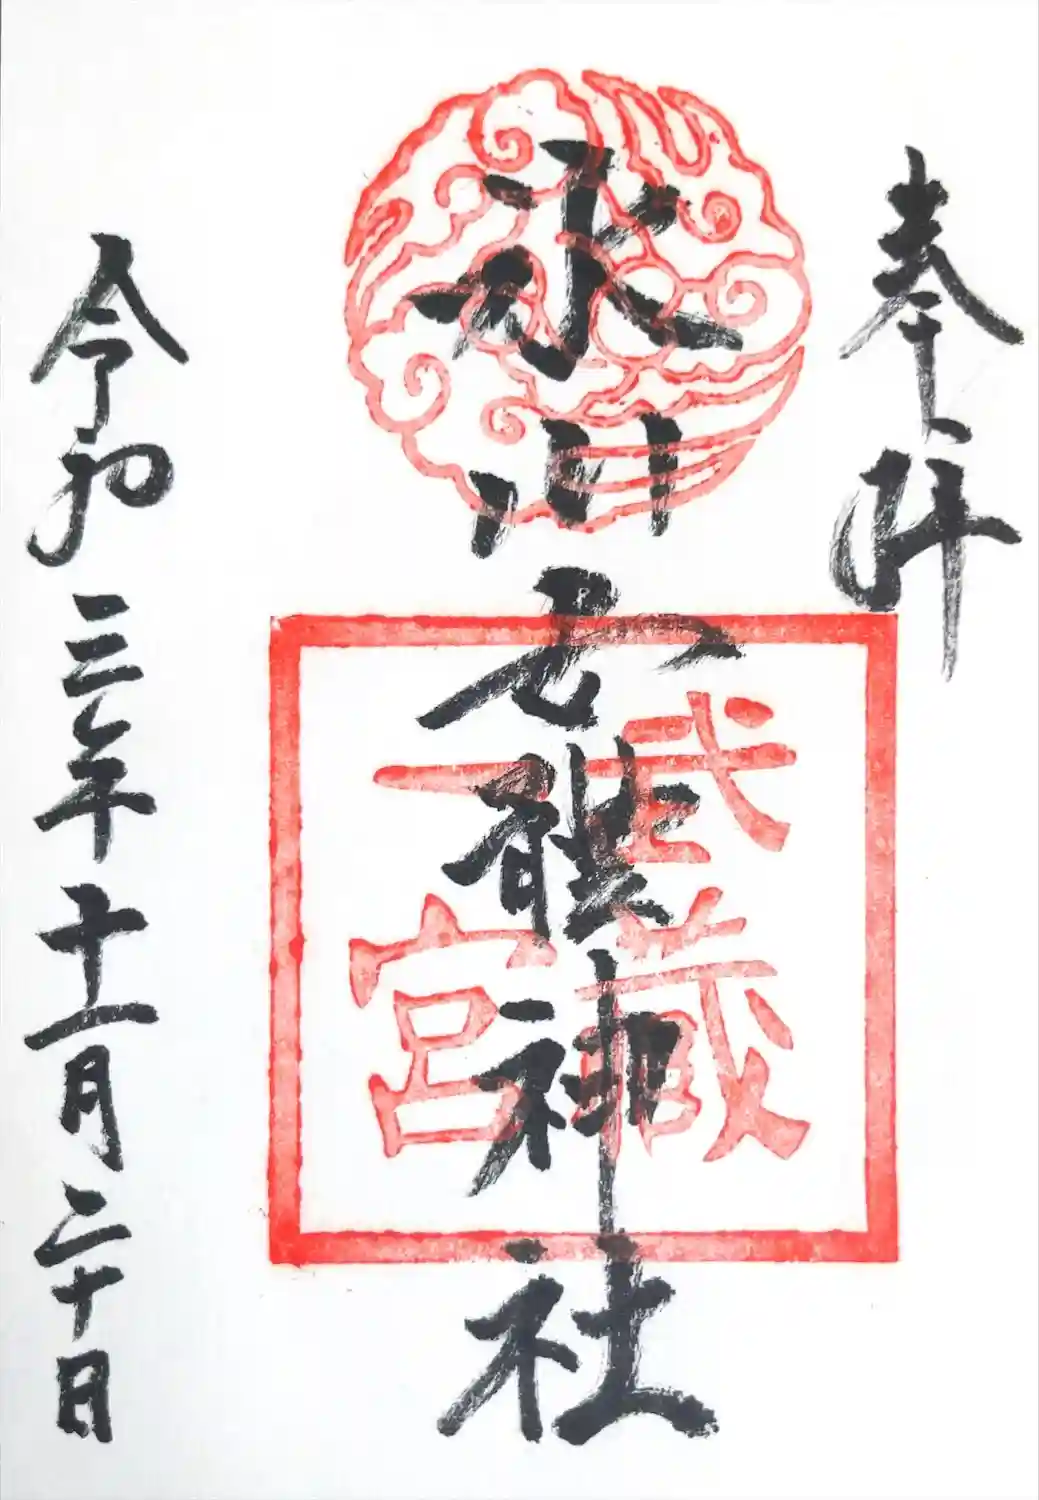 奉拝
氷川女體神社
武藏
一宮
令和三年十一月二十日